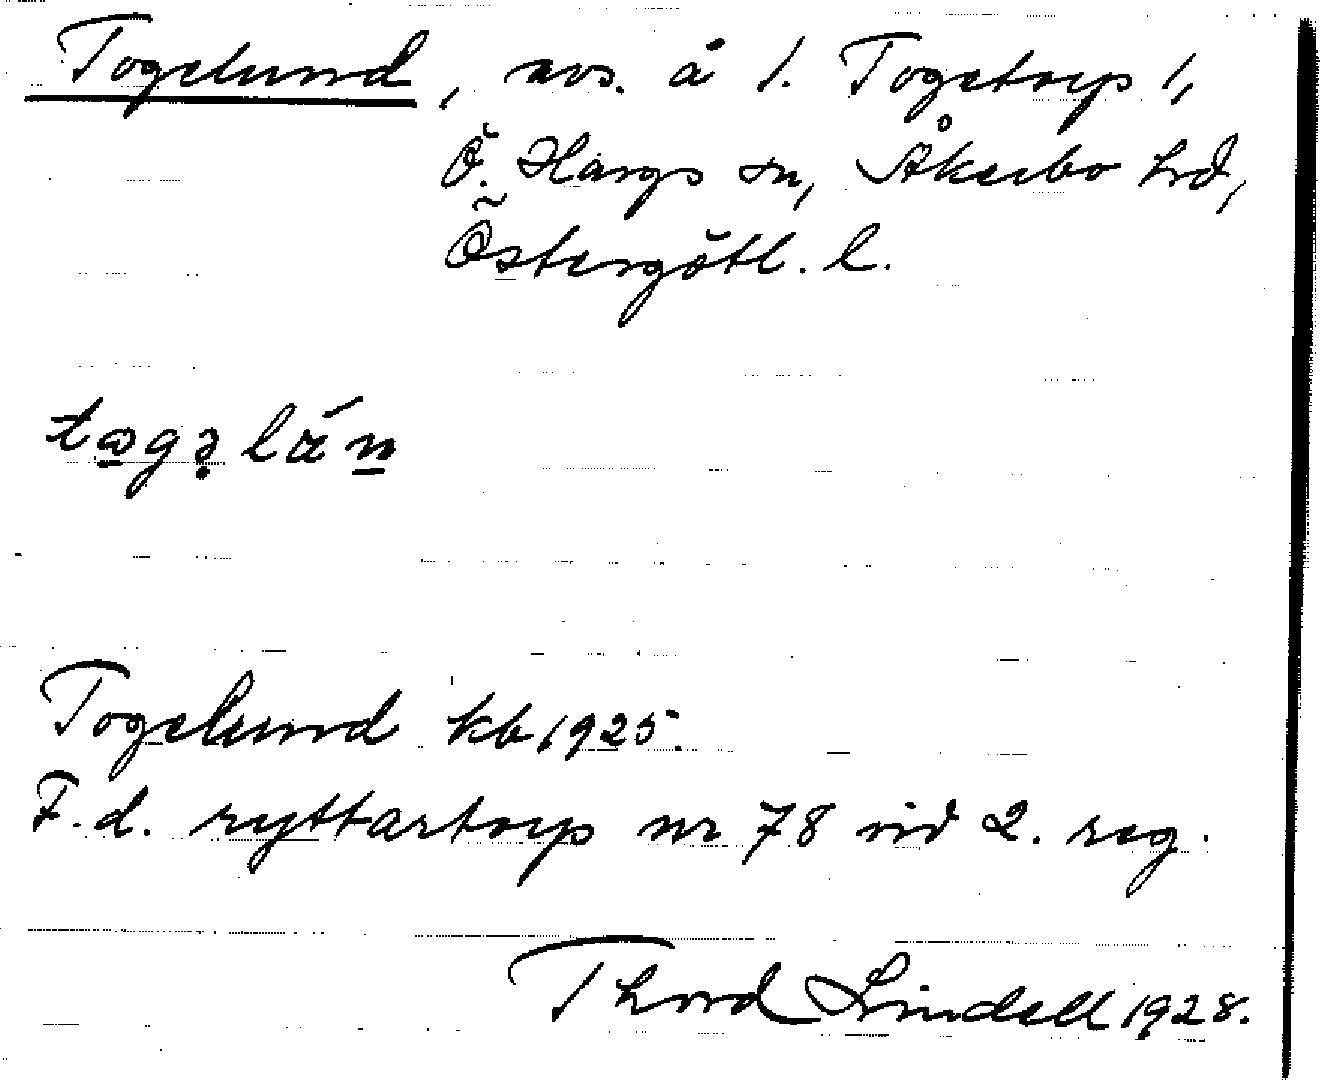 Togelund, avs. å 1. Togetorp 1,
Ö. Hargs sn, Åkerbo hrd,
Östergötl. l.
tɷgəlán
Togelund kb 1925.
F.d. ryttartorp nr 78 vid 2. reg.
Thord Lindell 1928.